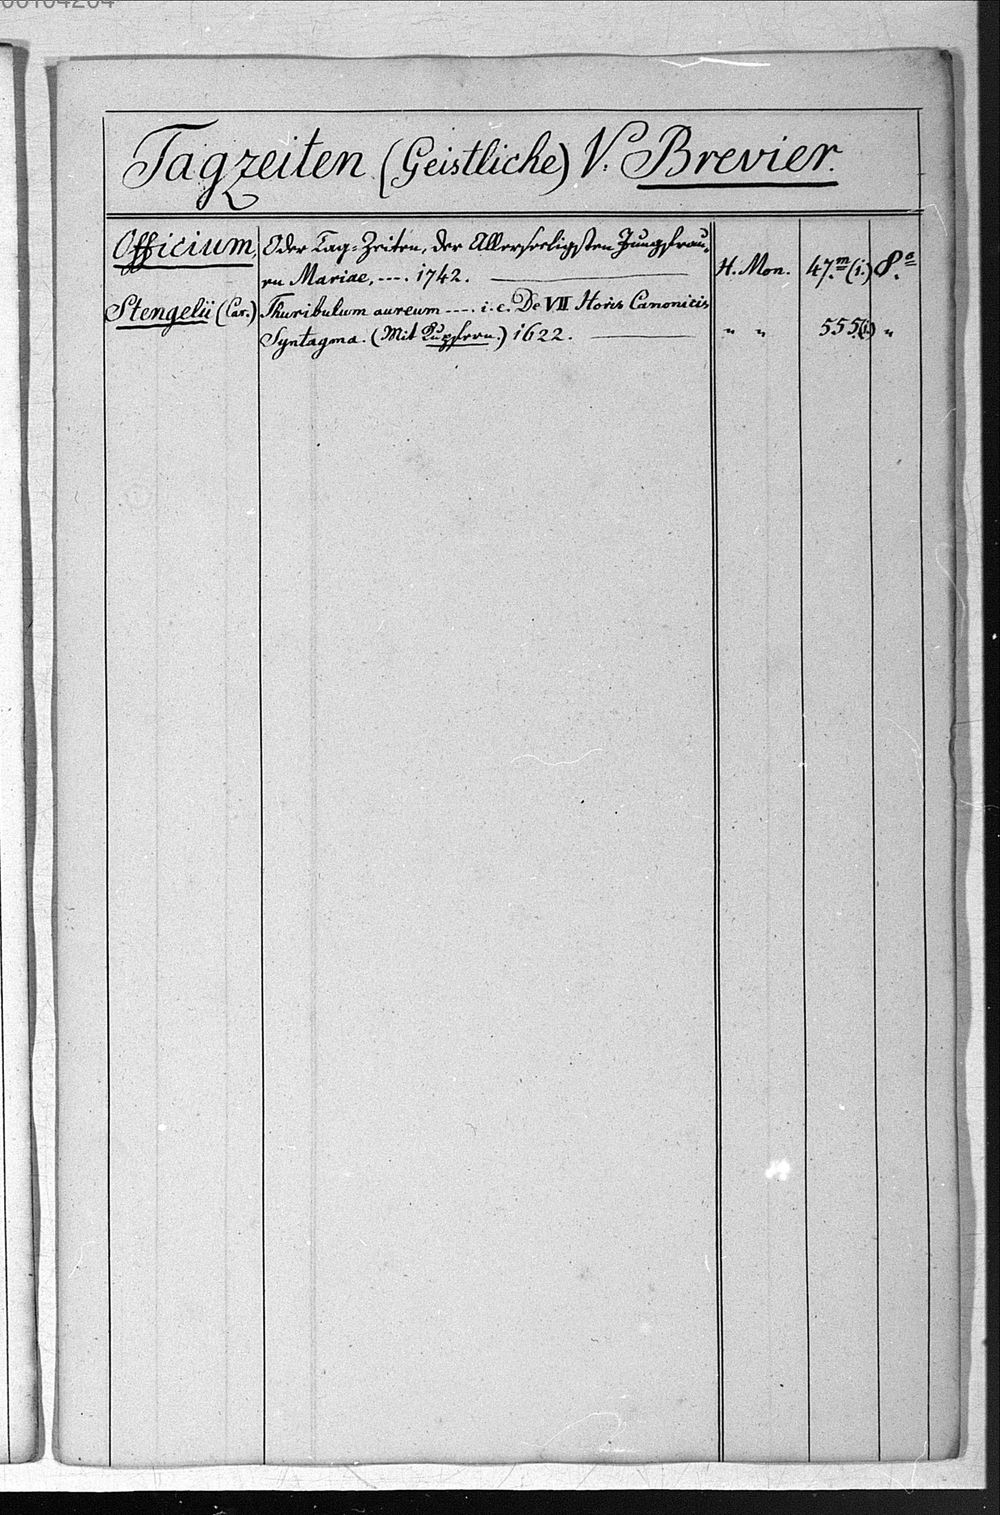 Tagzeiten (Geistliche) V. Brevier.
Officium, Oder Tag-Zeiten, der Allerseeligsten Jungfrau-
en Mariae, .... 1742. H. Mon. 47.m (i.) 8.o
Stengelii (Car.) Thuribulum aureum .... i. e. De VII Horis Canonicis
Syntagma. (Mit Kupfern.) 1622. " " 555(i) "